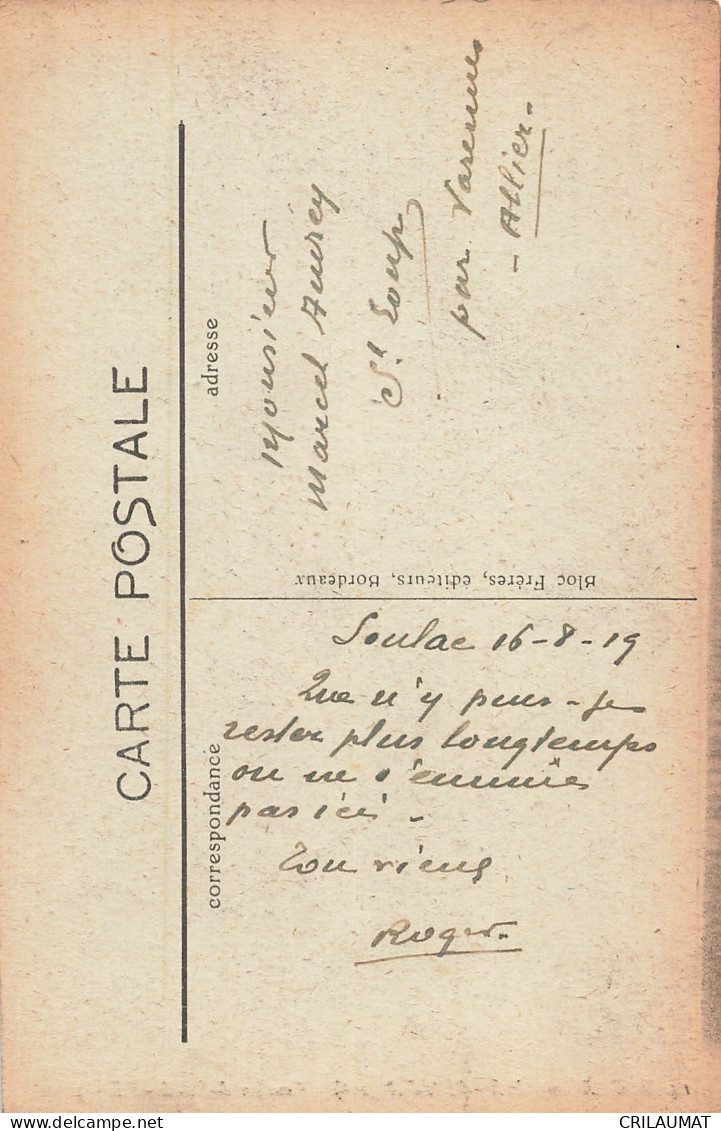 CARTE POSTALE
correspondance
adresse
Soulac 16-8-19
Que n'y puis-je
rester plus longtemps
on ne s'ennuie
pas ici.
Ton vieux
Roger.
Bloc Frères, éditeurs, Bordeaux
Monsieur
Marcel
St Loup
par Varennes
- Allier -
CRILAUMAT